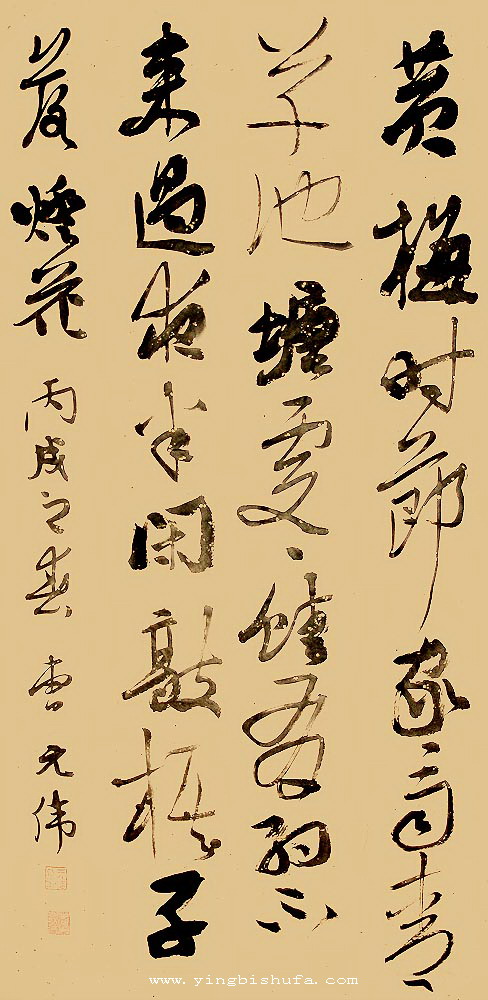 黄梅时節家〻雨青
草池塘處〻蛙有約不
来過夜半閑敲棋子
落燈花
丙戌之春 曹元伟
www.yingbishufa.com